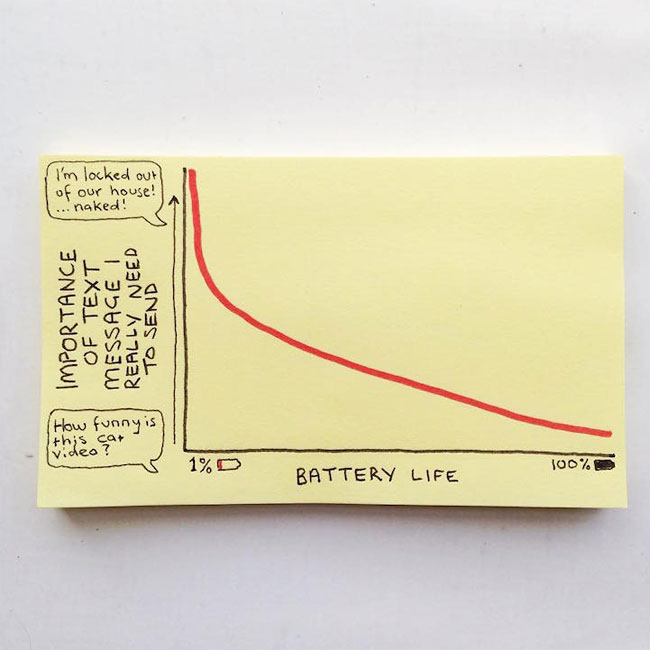 I'm locked out
of our house!
...naked!
IMPORTANCE
OF TEXT
MESSAGE I
REALLY NEED
TO SEND
How funny is
this cat
video?
1%
BATTERY LIFE
100%